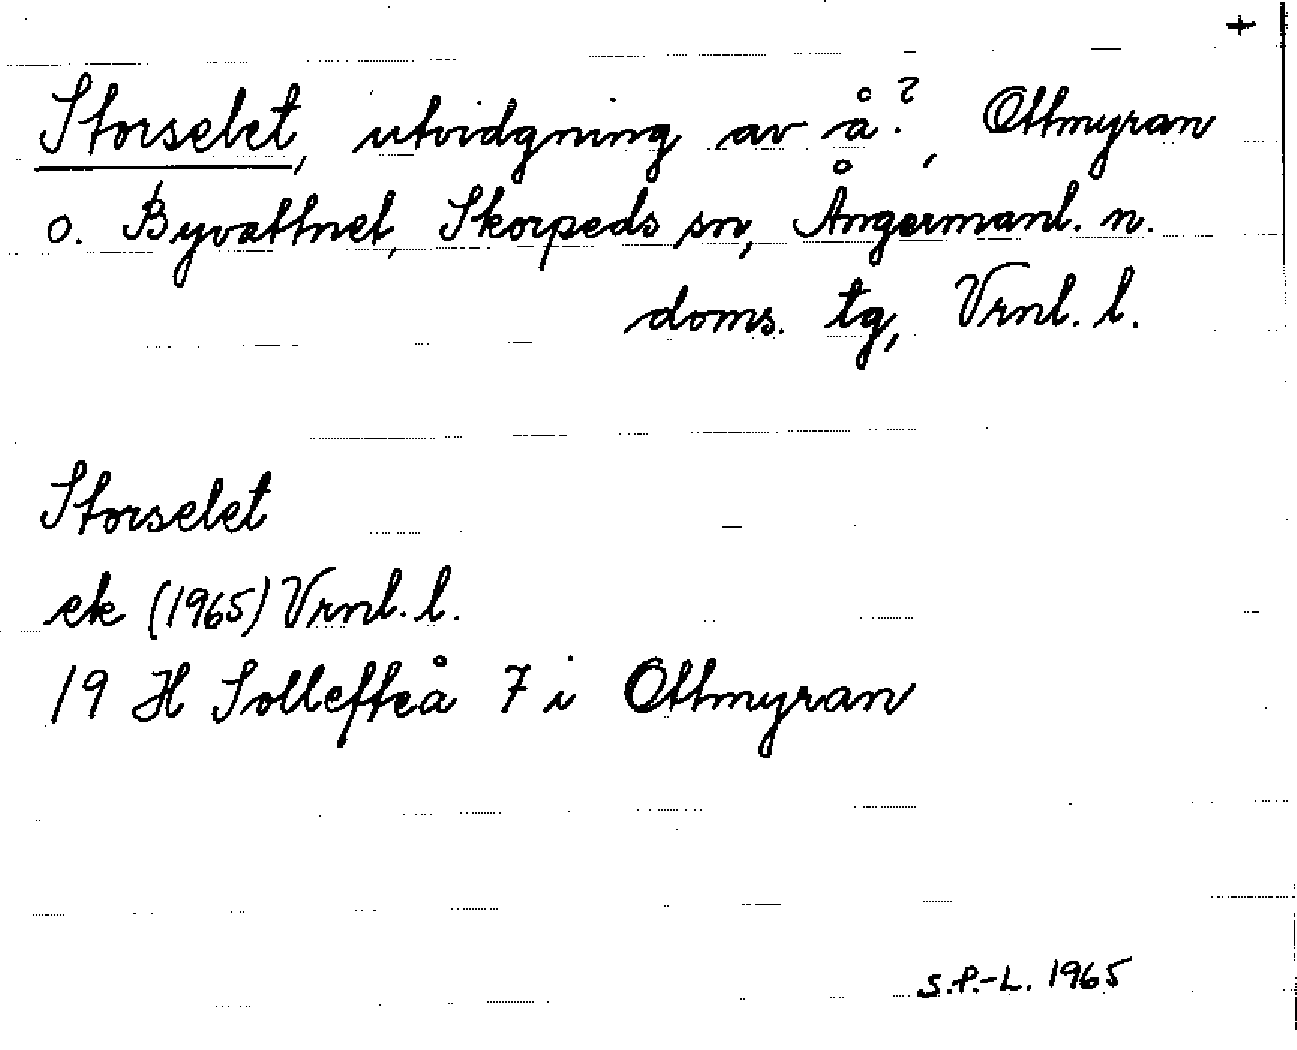 +
Storselet, utvidgning av å?, Ottmyran
o. Byvattnet, Skorpeds sn, Ångermanl. n.
doms. tg, Vrnl. l.
Storselet
ek (1965) Vrnl. l.
19 H Sollefteå 7 i Ottmyran
S.P.-L. 1965